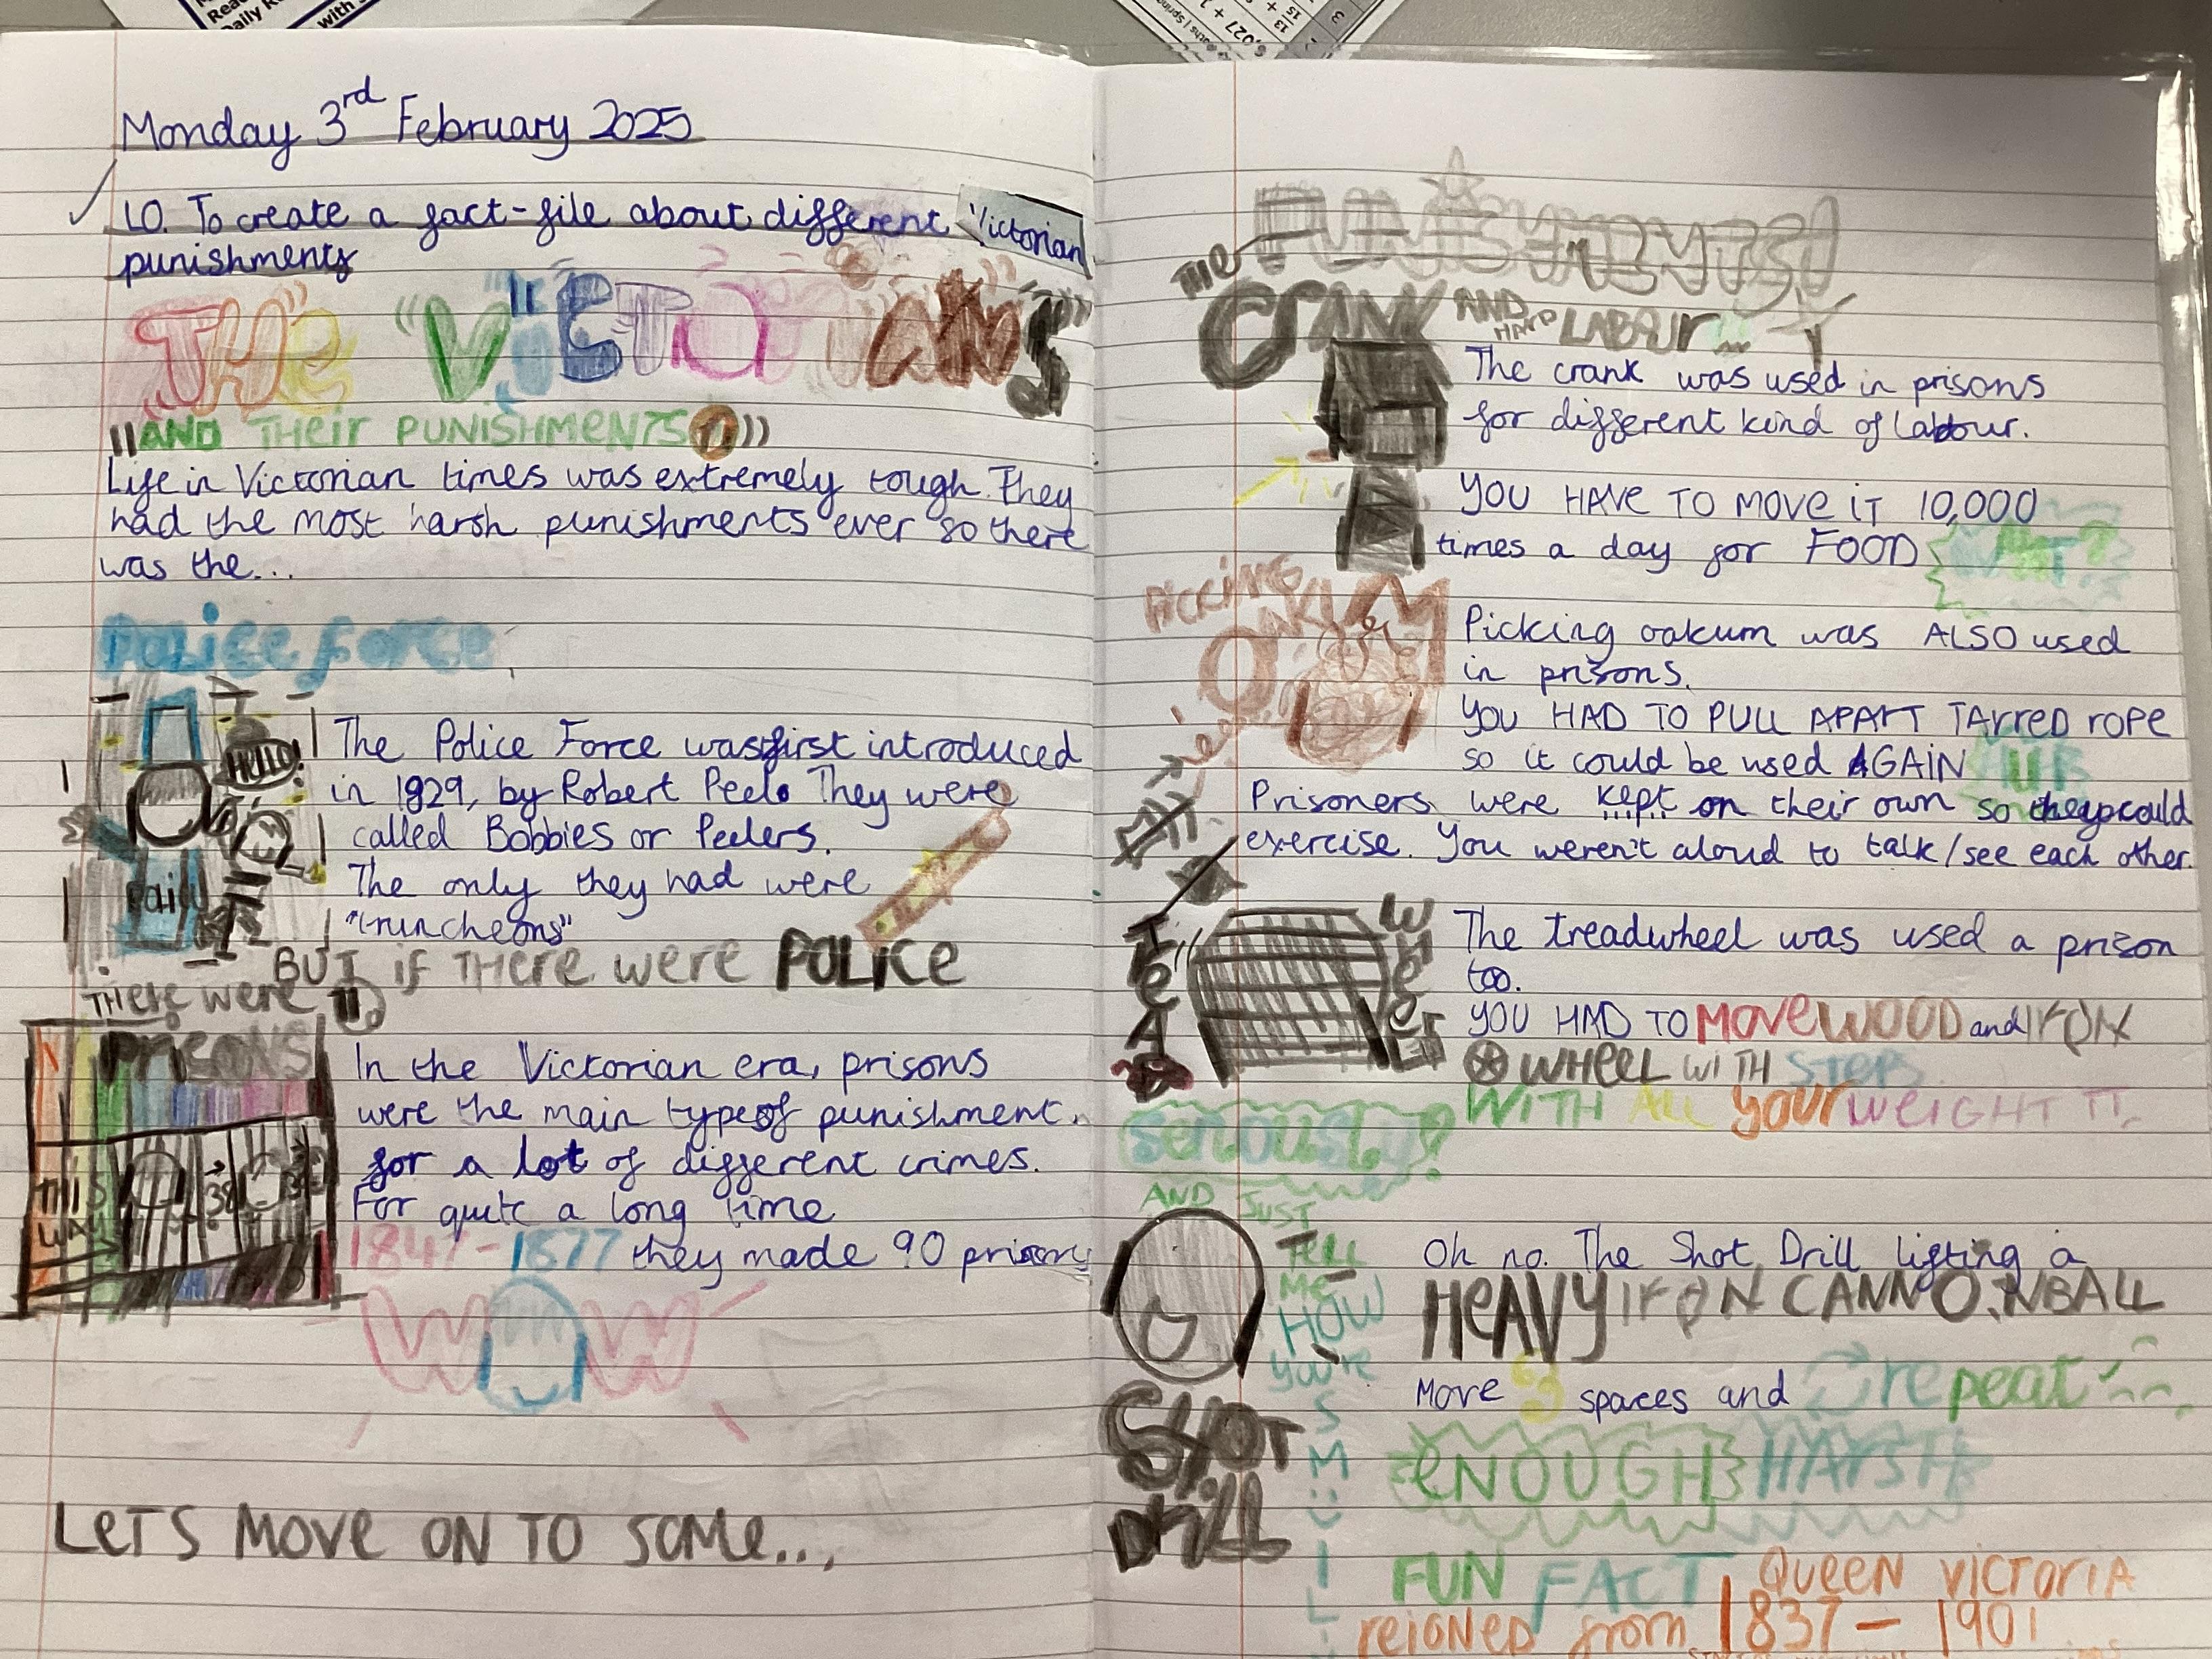 Monday 3rd February 2025
LO. To create a fact-file about different Victorian
punishments
THE VICTORIANS
AND THEir PUNISHMeNTS
Life in Victorian times was extremely tough. They
had the most harsh punishments ever so there
was the...
Police force
HELLO!
The Police Force was first introduced
in 1829, by Robert Peel. They were
called Bobbies or Peelers.
The only they had were
"truncheons"
BUT iF THere were POLiCe
THere were
PriSONS
THiS
WAY
In the Victorian era, prisons
were the main type of punishment.
for a lot of different crimes.
For quite a long time
1847-1877 they made 90 prisons
WOW
LeTS MOVe ON TO SOMe...,
PUNISHMENTS!
THE
CRANK AND HARD LABOUr
The crank was used in prisons
for different kind of labour.
YOU HAVE TO MOVE IT 10,000
times a day for FOOD
PiCKiNG
OAKUM
Picking oakum was ALSO used
in prisons.
YOU HAD TO PULL APArT TArreD rOPe
so it could be used AGAIN
Prisoners were kept on their own so they could
exercise. You weren't aloud to talk/see each other.
TreAD
WHeeL
The treadwheel was used a prison
too.
YOU HAD TO MOVe WOOD and IrON
WHEEL WiTH STePS
WITH ALL YOUr WEIGHT
SeriOUSLY?
AND JUST
TeLL
Me
HOW
YOU're
SMiL
Oh no. The Shot Drill lifting a
HeAVY IrON CANNONBALL
Move 3 spaces and repeat
SHOT
Drill
eNOUGH HArSH
FUN FACT QUeeN VICTOriA
reiGNeD from 1837 - 1901